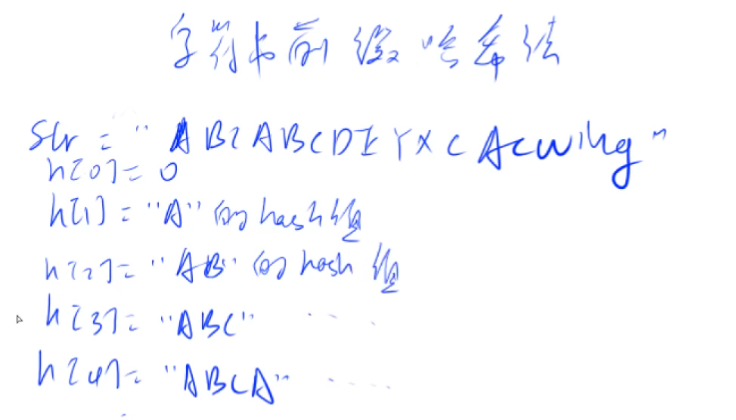 字符串前缀哈希法
str = "ABCABCDEYXCAcwing"
h[0] = 0
h[1] = "A" 的 hash 值
h[2] = "AB" 的 hash 值
h[3] = "ABC" ......
h[4] = "ABCA" ......